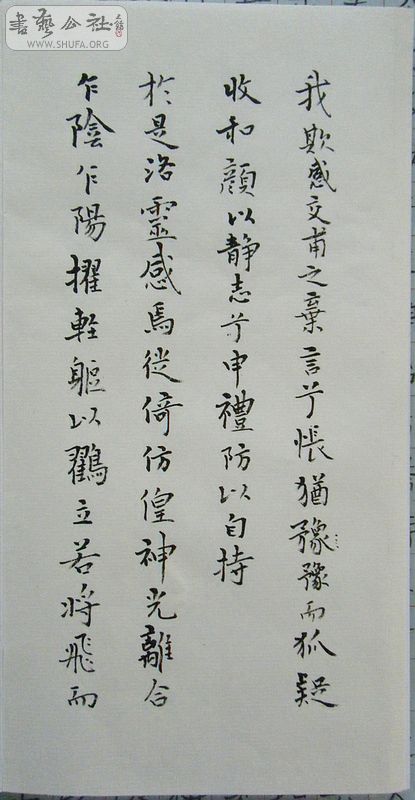 書藝公社
WWW.SHUFA.ORG
我欺感交甫之棄言兮悵猶豫豫而狐疑
收和顔以静志兮申禮防以自持
於是洛靈感焉徙倚仿偟神光離合
乍陰乍陽擢軽軀以鶴立若將飛而